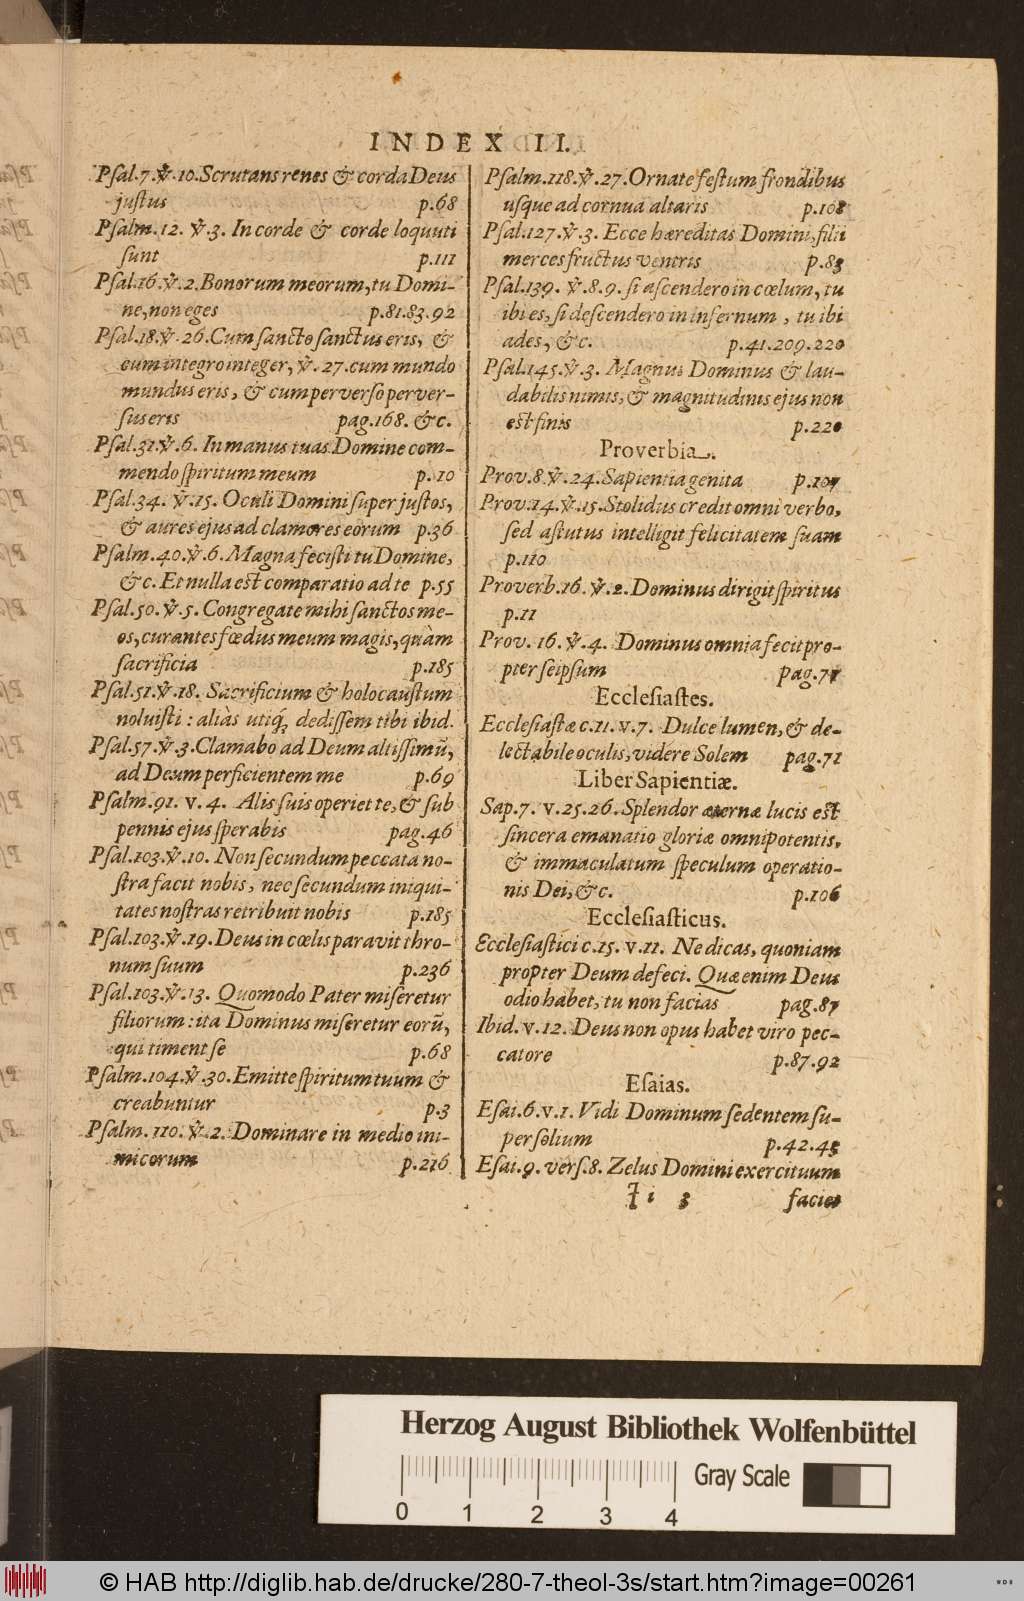 INDEX II.
Psal.7.℣.10.Scrutans renes & corda Deus
justus p.68
Psalm.12.℣.3. In corde & corde loquuti
sunt p.111
Psal.16.℣.2.Bonorum meorum, tu Domi-
ne, non eges p.81.83.92
Psal.18.℣.26.Cum sancto sanctus eris, &
cum integro integer, ℣.27.cum mundo
mundus eris, & cum perverso perver-
sus eris pag.168. &c.
Psal.31.℣.6. In manus tuas Domine com-
mendo spiritum meum p.10
Psal.34.℣.15. Oculi Domini super justos,
& aures ejus ad clamores eorum p.36
Psalm.40.℣.6. Magna fecisti tu Domine,
&c. Et nulla est comparatio ad te p.55
Psal.50.℣.5. Congregate mihi sanctos me-
os, curantes fœdus meum magis, quàm
sacrificia p.185
Psal.51.℣.18. Sacrificium & holocaustum
noluisti : aliàs utiq́; dedissem tibi ibid.
Psal.57.℣.3.Clamabo ad Deum altissimū,
ad Deum perficientem me p.69
Psalm.91. v. 4. Alis suis operiet te, & sub
pennis ejus sperabis pag.46
Psal.103.℣.10. Non secundum peccata no-
stra facit nobis, nec secundum iniqui-
tates nostras retribuit nobis p.185
Psal.103.℣.19.Deus in cœlis paravit thro-
num suum p.236
Psal.103.℣.13. Quomodo Pater miseretur
filiorum : ita Dominus miseretur eorū,
qui timent se p.68
Psalm.104.℣.30.Emitte spiritum tuum &
creabuntur p.3
Psalm.110.℣.2. Dominare in medio ini-
micorum p.216
Psalm.118.℣.27.Ornate festum frondibus
usque ad cornua altaris p.168
Psal.127.℣.3. Ecce hæreditas Domini, filii
merces fructus ventris p.83
Psal.139. ℣.8.9. si ascendero in cœlum, tu
ibi es, si descendero in infernum, tu ibi
ades, &c. p.41.209.220
Psal.145.℣.3. Magnus Dominus & lau-
dabilis nimis, & magnitudinis ejus non
est finis p.220
Proverbia.
Prov.8.℣.24.Sapientia genita p.107
Prov.14.℣.15.Stolidus credit omni verbo,
sed astutus intelligit felicitatem suam
p.110
Proverb.16.℣.2.Dominus dirigit spiritus
p.11
Prov.16.℣.4. Dominus omnia fecit pro-
pter seipsum pag.71
Ecclesiastes.
Ecclesiastæ c.11. v.7. Dulce lumen, & de-
lectabile oculis, videre Solem pag.71
Liber Sapientiæ.
Sap.7. v.25.26. Splendor æternæ lucis est
sincera emanatio gloriæ omnipotentis,
& immaculatum speculum operatio-
nis Dei, &c. p.106
Ecclesiasticus.
Ecclesiastici c.15. v.11. Ne dicas, quoniam
propter Deum defeci. Quæ enim Deus
odio habet, tu non facias pag.87
Ibid. v.12. Deus non opus habet viro pec-
catore p.87.92
Esaias.
Esai.6.v.1. Vidi Dominum sedentem su-
per solium p.42.45
Esai.9. vers.8. Zelus Domini exercituum
i 3 faciet
Herzog August Bibliothek Wolfenbüttel
0 1 2 3 4 Gray Scale
© HAB http://diglib.hab.de/drucke/280-7-theol-3s/start.htm?image=00261